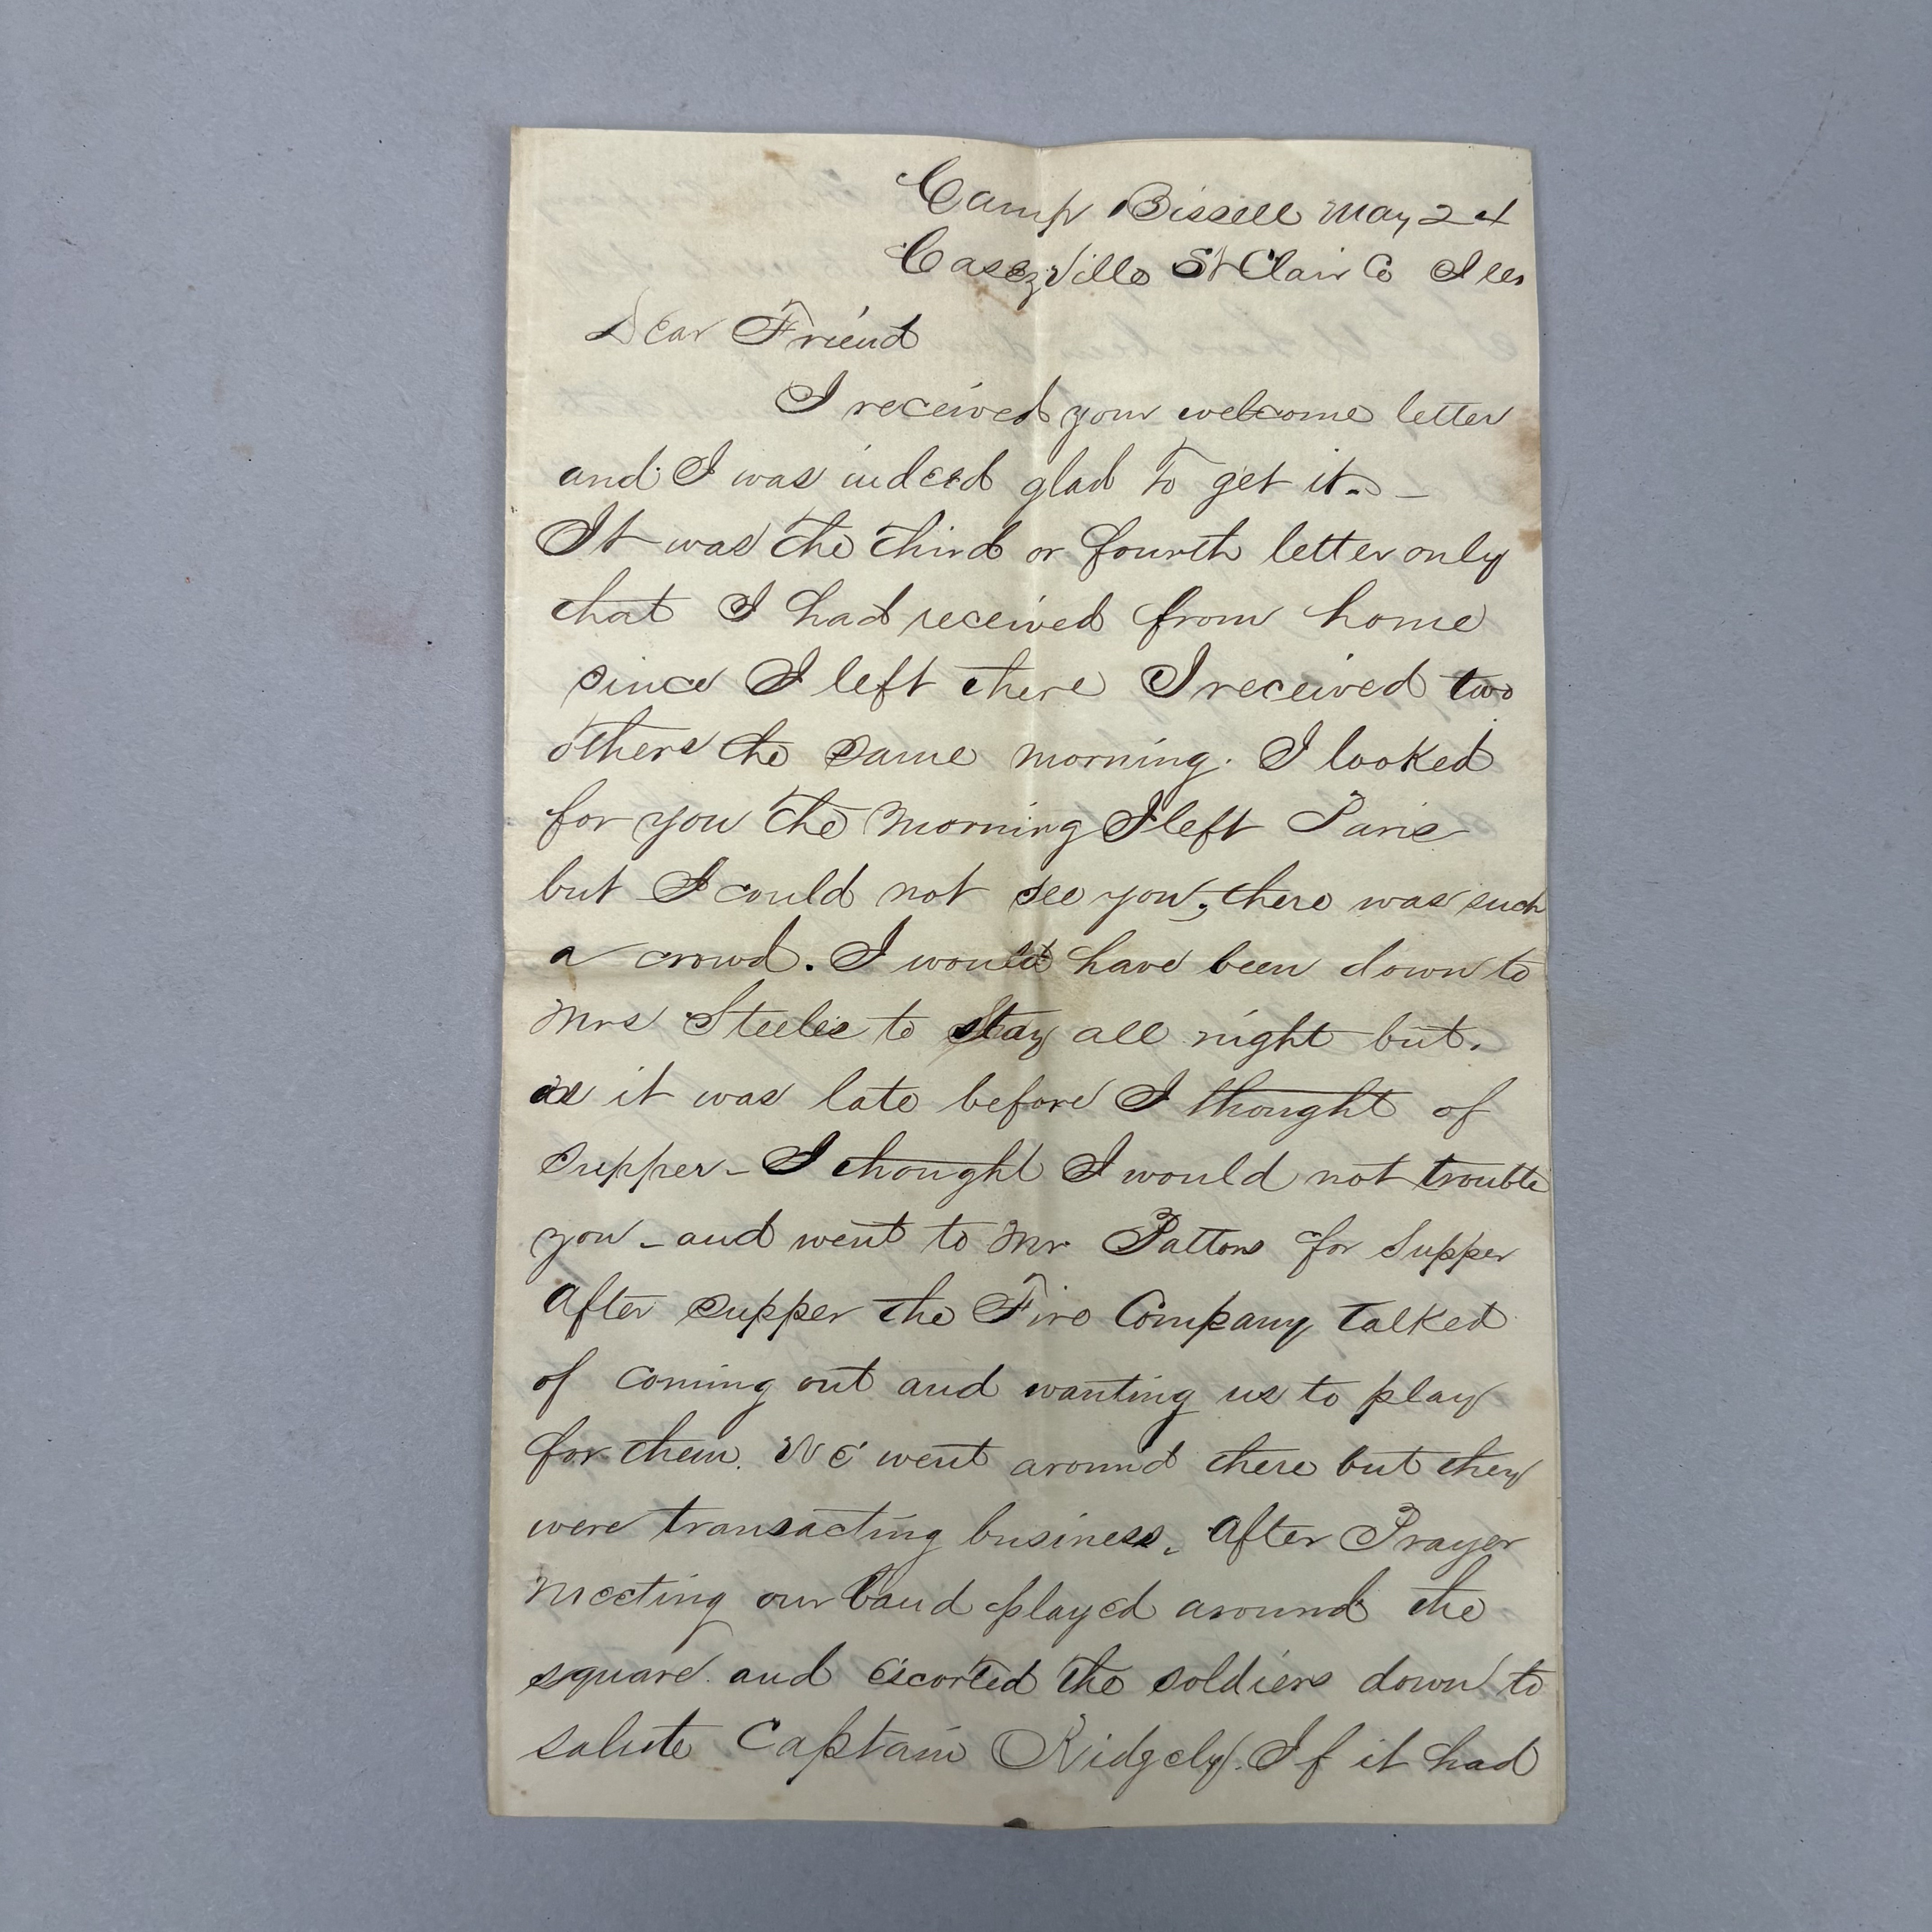 Camp Bissell May 24
Caseyville St Clair Co Ills
Dear Friend
I received your welcome letter
and I was indeed glad to get it. —
It was the third or fourth letter only
that I had received from home
since I left there I received two
others the same morning. I looked
for you the morning I left Paris
but I could not see you, there was such
a crowd. I would have been down to
Mrs Steeles to stay all night but.
as it was late before I thought of
supper - I thought I would not trouble
you - and went to Mr Pattons for supper
After supper the Fire Company talked
of coming out and wanting us to play
for them. We went around there but they
were transacting business. After Prayer
meeting our band played around the
square and escorted the soldiers down to
salute Captain Ridgely. If it had